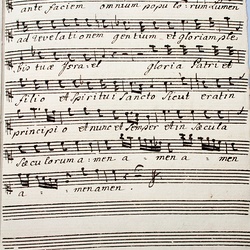 ante faciem omnium populorum lumen
ad revelationem gentium et gloriam ple
bis tuæ Israel gloria Patri et
filio et Spiritui Sancto Sicut erat in
principio et nunc et Semper et in Sæcula
Sæculorum amen amen amen
a men amen.